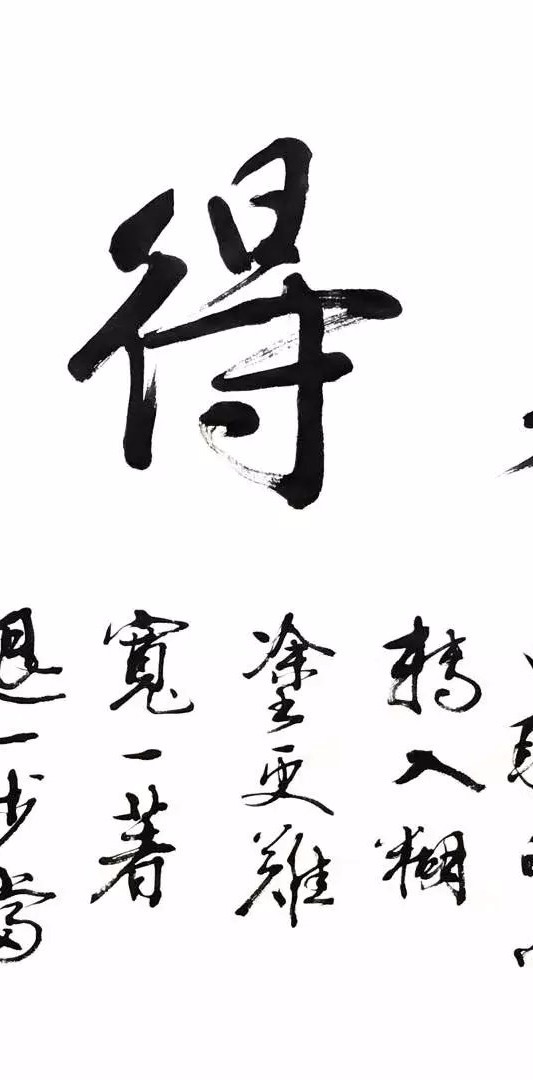 得
轉入糊
塗更難
寬一著
退一步當